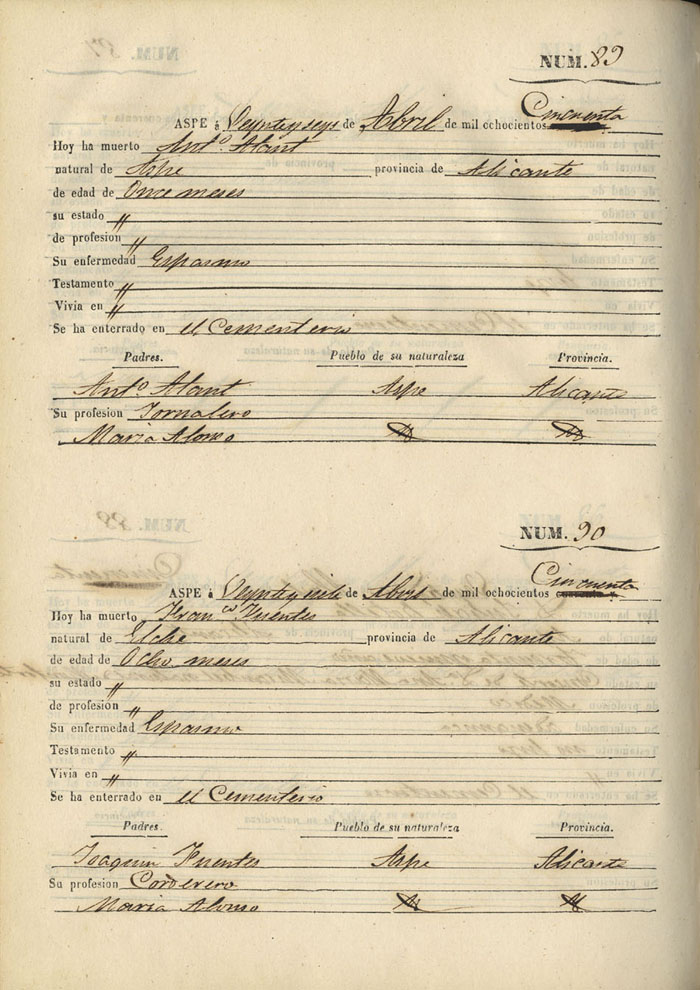 NUM. 89
ASPE á Veyntyseys de Abril de mil ochocientos Cincuenta
Hoy ha muerto Antº. Alant
natural de Aspe provincia de Alicante
de edad de Once meses
su estado "
de profesion "
Su enfermedad Espasmo
Testamento "
Vivia en "
Se ha enterrado en el Cementerio
Padres. Pueblo de su naturaleza Provincia.
Antº. Alant Aspe Alicante
Su profesion Jornalero
Maria Alonso
NUM. 90
ASPE á de Abril de mil ochocientos Cincuenta
Hoy ha muerto Franco Fuentes
natural de Elche provincia de Alicante
de edad de Ocho meses
su estado "
de profesion "
Su enfermedad Espasmo
Testamento "
Vivia en "
Se ha enterrado en el Cementerio
Padres. Pueblo de su naturaleza Provincia.
Joaquin Fuentes Aspe Alicante
Su profesion
Maria Alonso